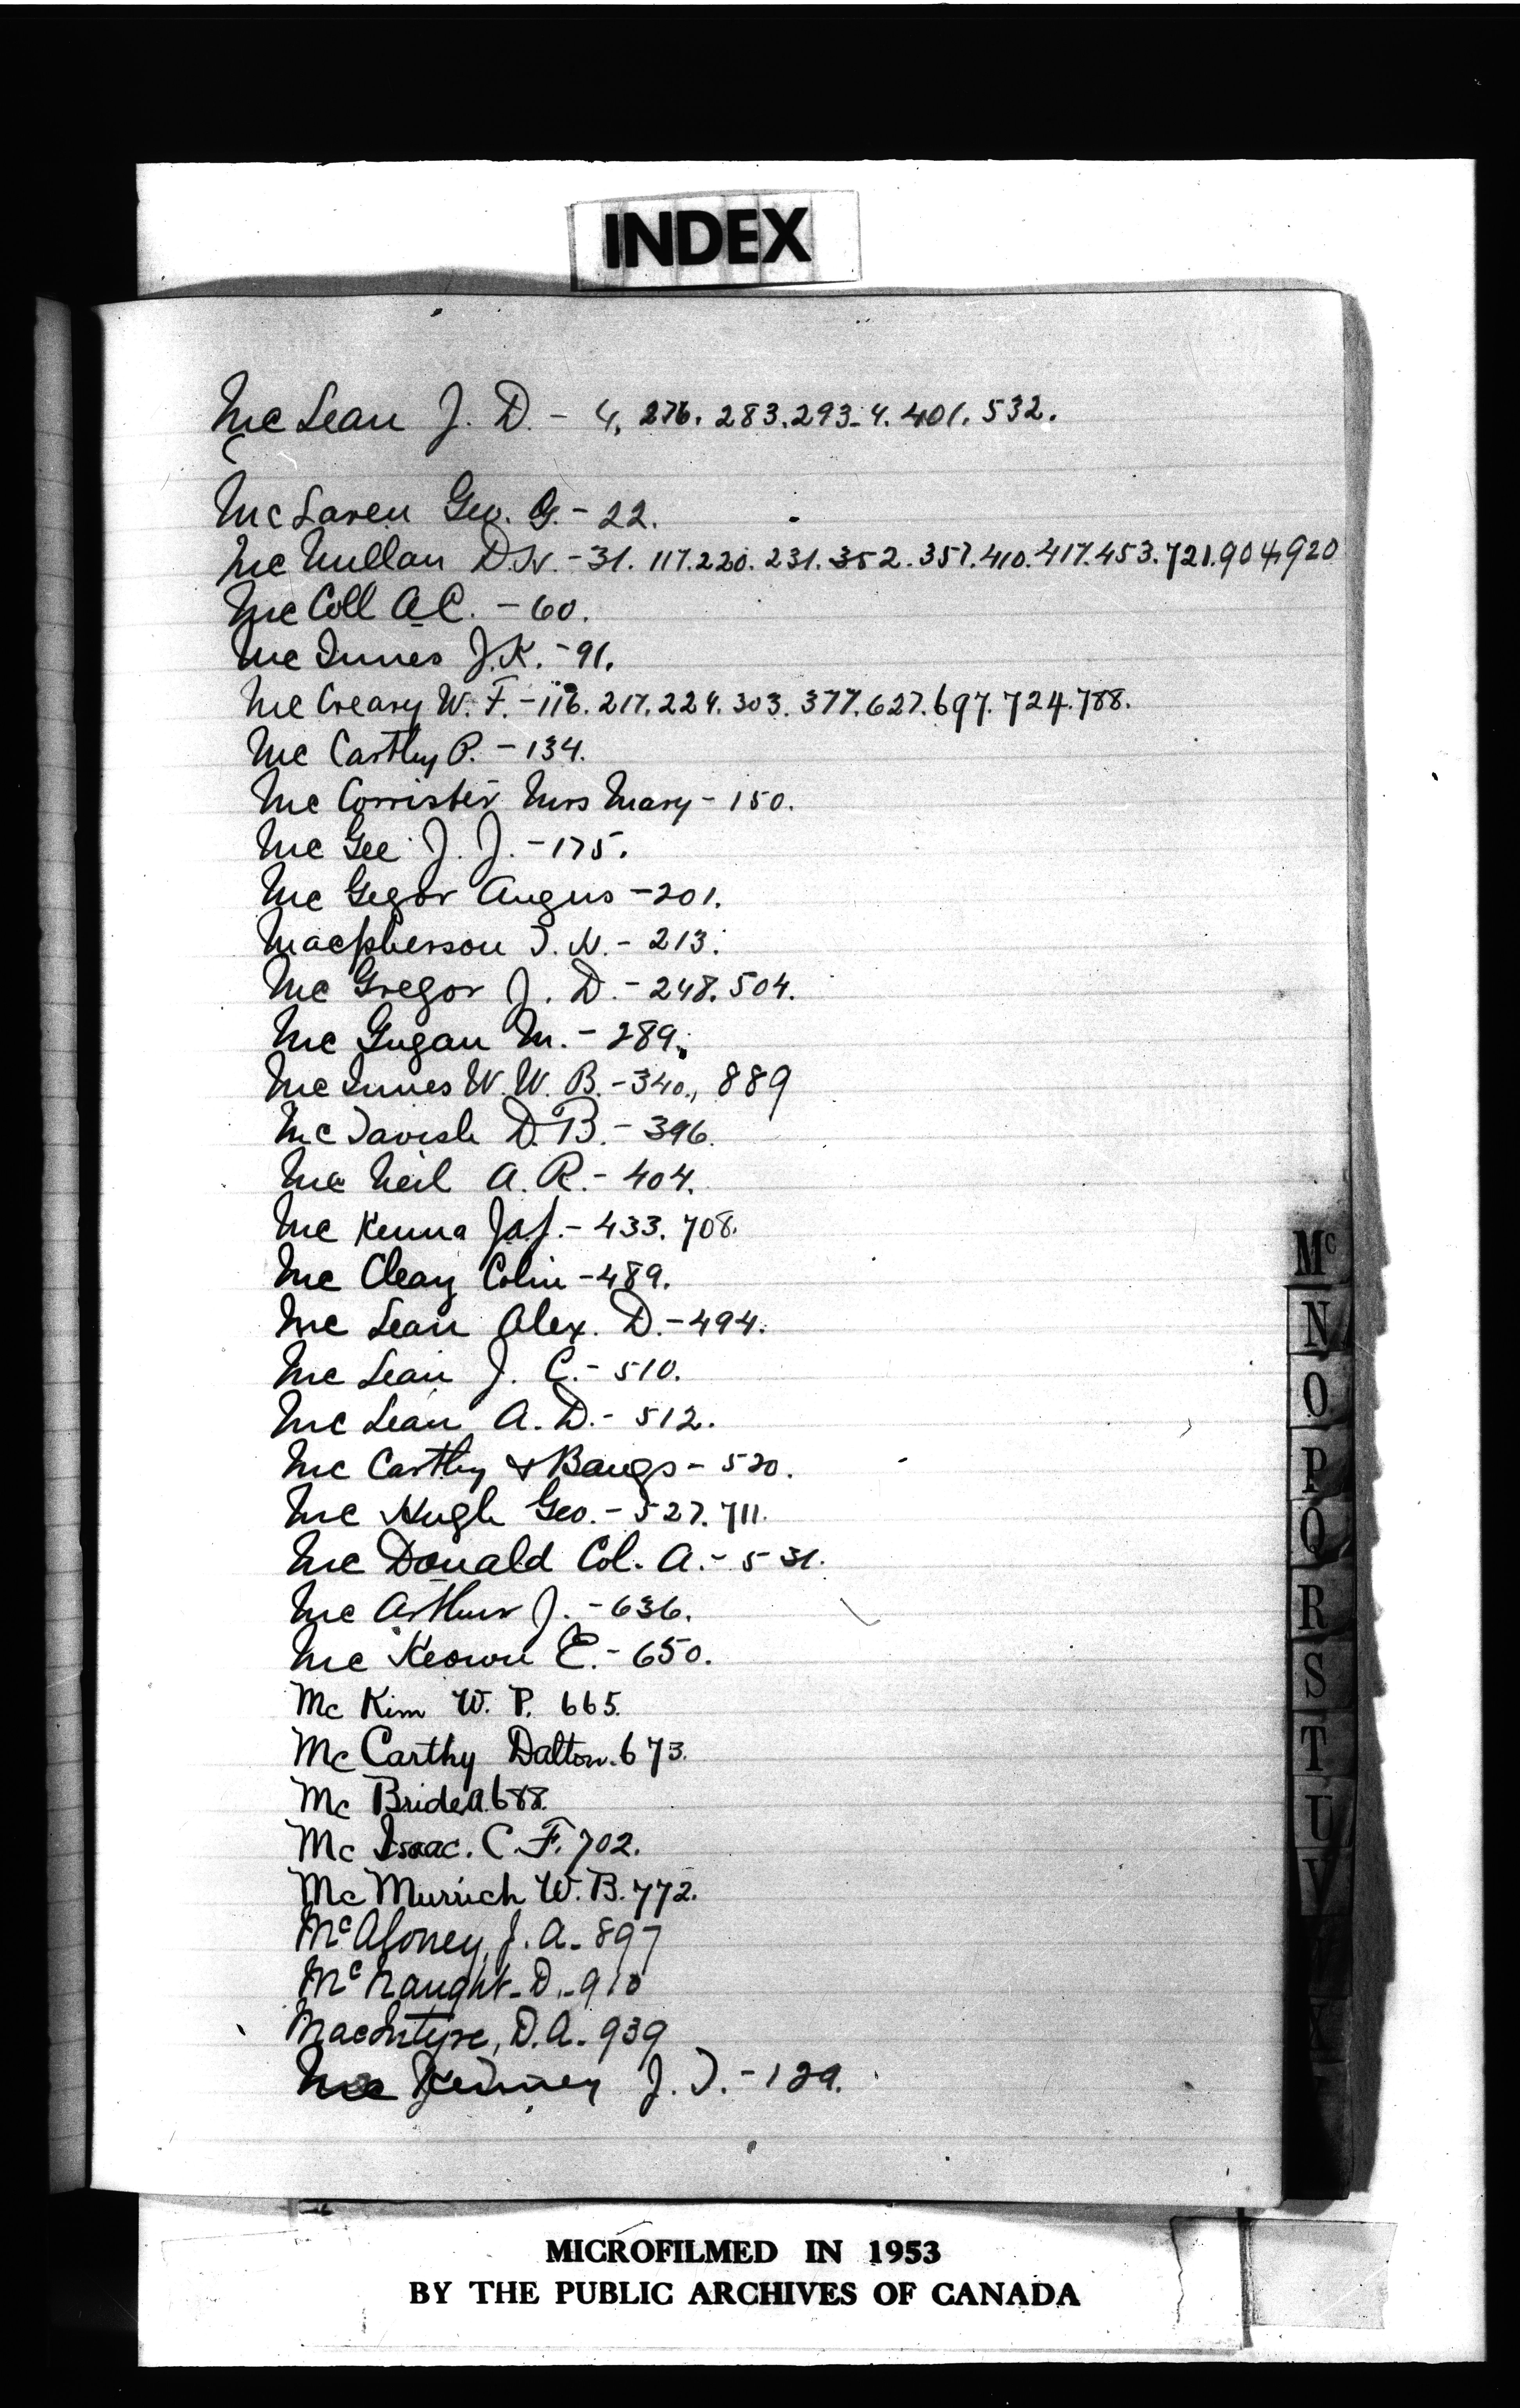 INDEX
McLean J. D. - 4. 276. 283. 293-4. 401. 532.
McLaren Geo. G. - 22.
McMullan D.W. - 31. 117. 220. 231. 352. 357. 410. 417. 453. 721. 904, 920
McColl A.C. - 60.
McInnes J.K. - 91.
McCreary W. F. - 116. 217. 224. 303. 377. 627. 697. 724. 788.
McCarthy P. - 134.
McCorrister Mrs Mary - 150.
McGee J. J. - 175.
McGegor Angus - 201.
Macpherson T. N. - 213.
McGregor J. D. - 248. 504.
McGugan M. - 289.
McInnes W. W. B. - 340., 889
McTavish D. B. - 396.
McNeil A. R. - 404.
McKenna Jas. - 433. 708.
McCleay Colin - 489.
McLean Alex. D. - 494.
McLean J. C. - 510.
McLean A. D. - 512.
McCarthy & Bangs - 520.
McHugh Geo. - 527. 711.
McDonald Col. A. - 531.
McArthur J. - 636.
McKeown E. - 650.
McKim W. P. 665.
McCarthy Dalton. 673.
McBride A 688.
McIsaac. C. F. 702.
McMurrich W. B. 772.
McAloney, J. A. - 897
McNaught - D. - 910
MacIntyre, D. A. - 939
McKenney J. T. - 129.
Mc
N
O
P
Q
R
S
T
U
V
X
MICROFILMED IN 1953
BY THE PUBLIC ARCHIVES OF CANADA